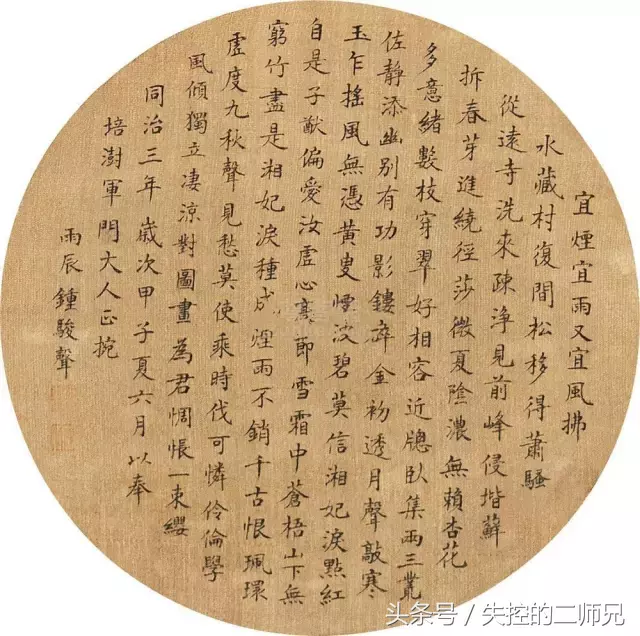 宜煙宜雨又宜風拂
水藏村復間松移得蕭騷
從遠寺洗來疎淨見前峰侵堦蘚
拆春芽迸繞徑莎微夏陰濃無賴杏花
多意緒數枝穿翠好相容近牕臥集兩三叢
佐靜添幽別有功影鏤碎金初透月聲敲寒
玉乍搖風無憑黃叟煙波碧莫信湘妃淚點紅
自是子猷偏愛汝虛心高節雪霜中蒼梧山下無
窮竹盡是湘妃淚種成煙雨不銷千古恨珮環
虛度九秋聲見愁莫使乘時伐可憐伶倫學
風傾獨立淒涼對圖畫為君惆悵一束纓
同治三年歲次甲子夏六月以奉
培澍軍門大人正捥
雨辰鍾駿聲
头条号 / 失控的二师兄